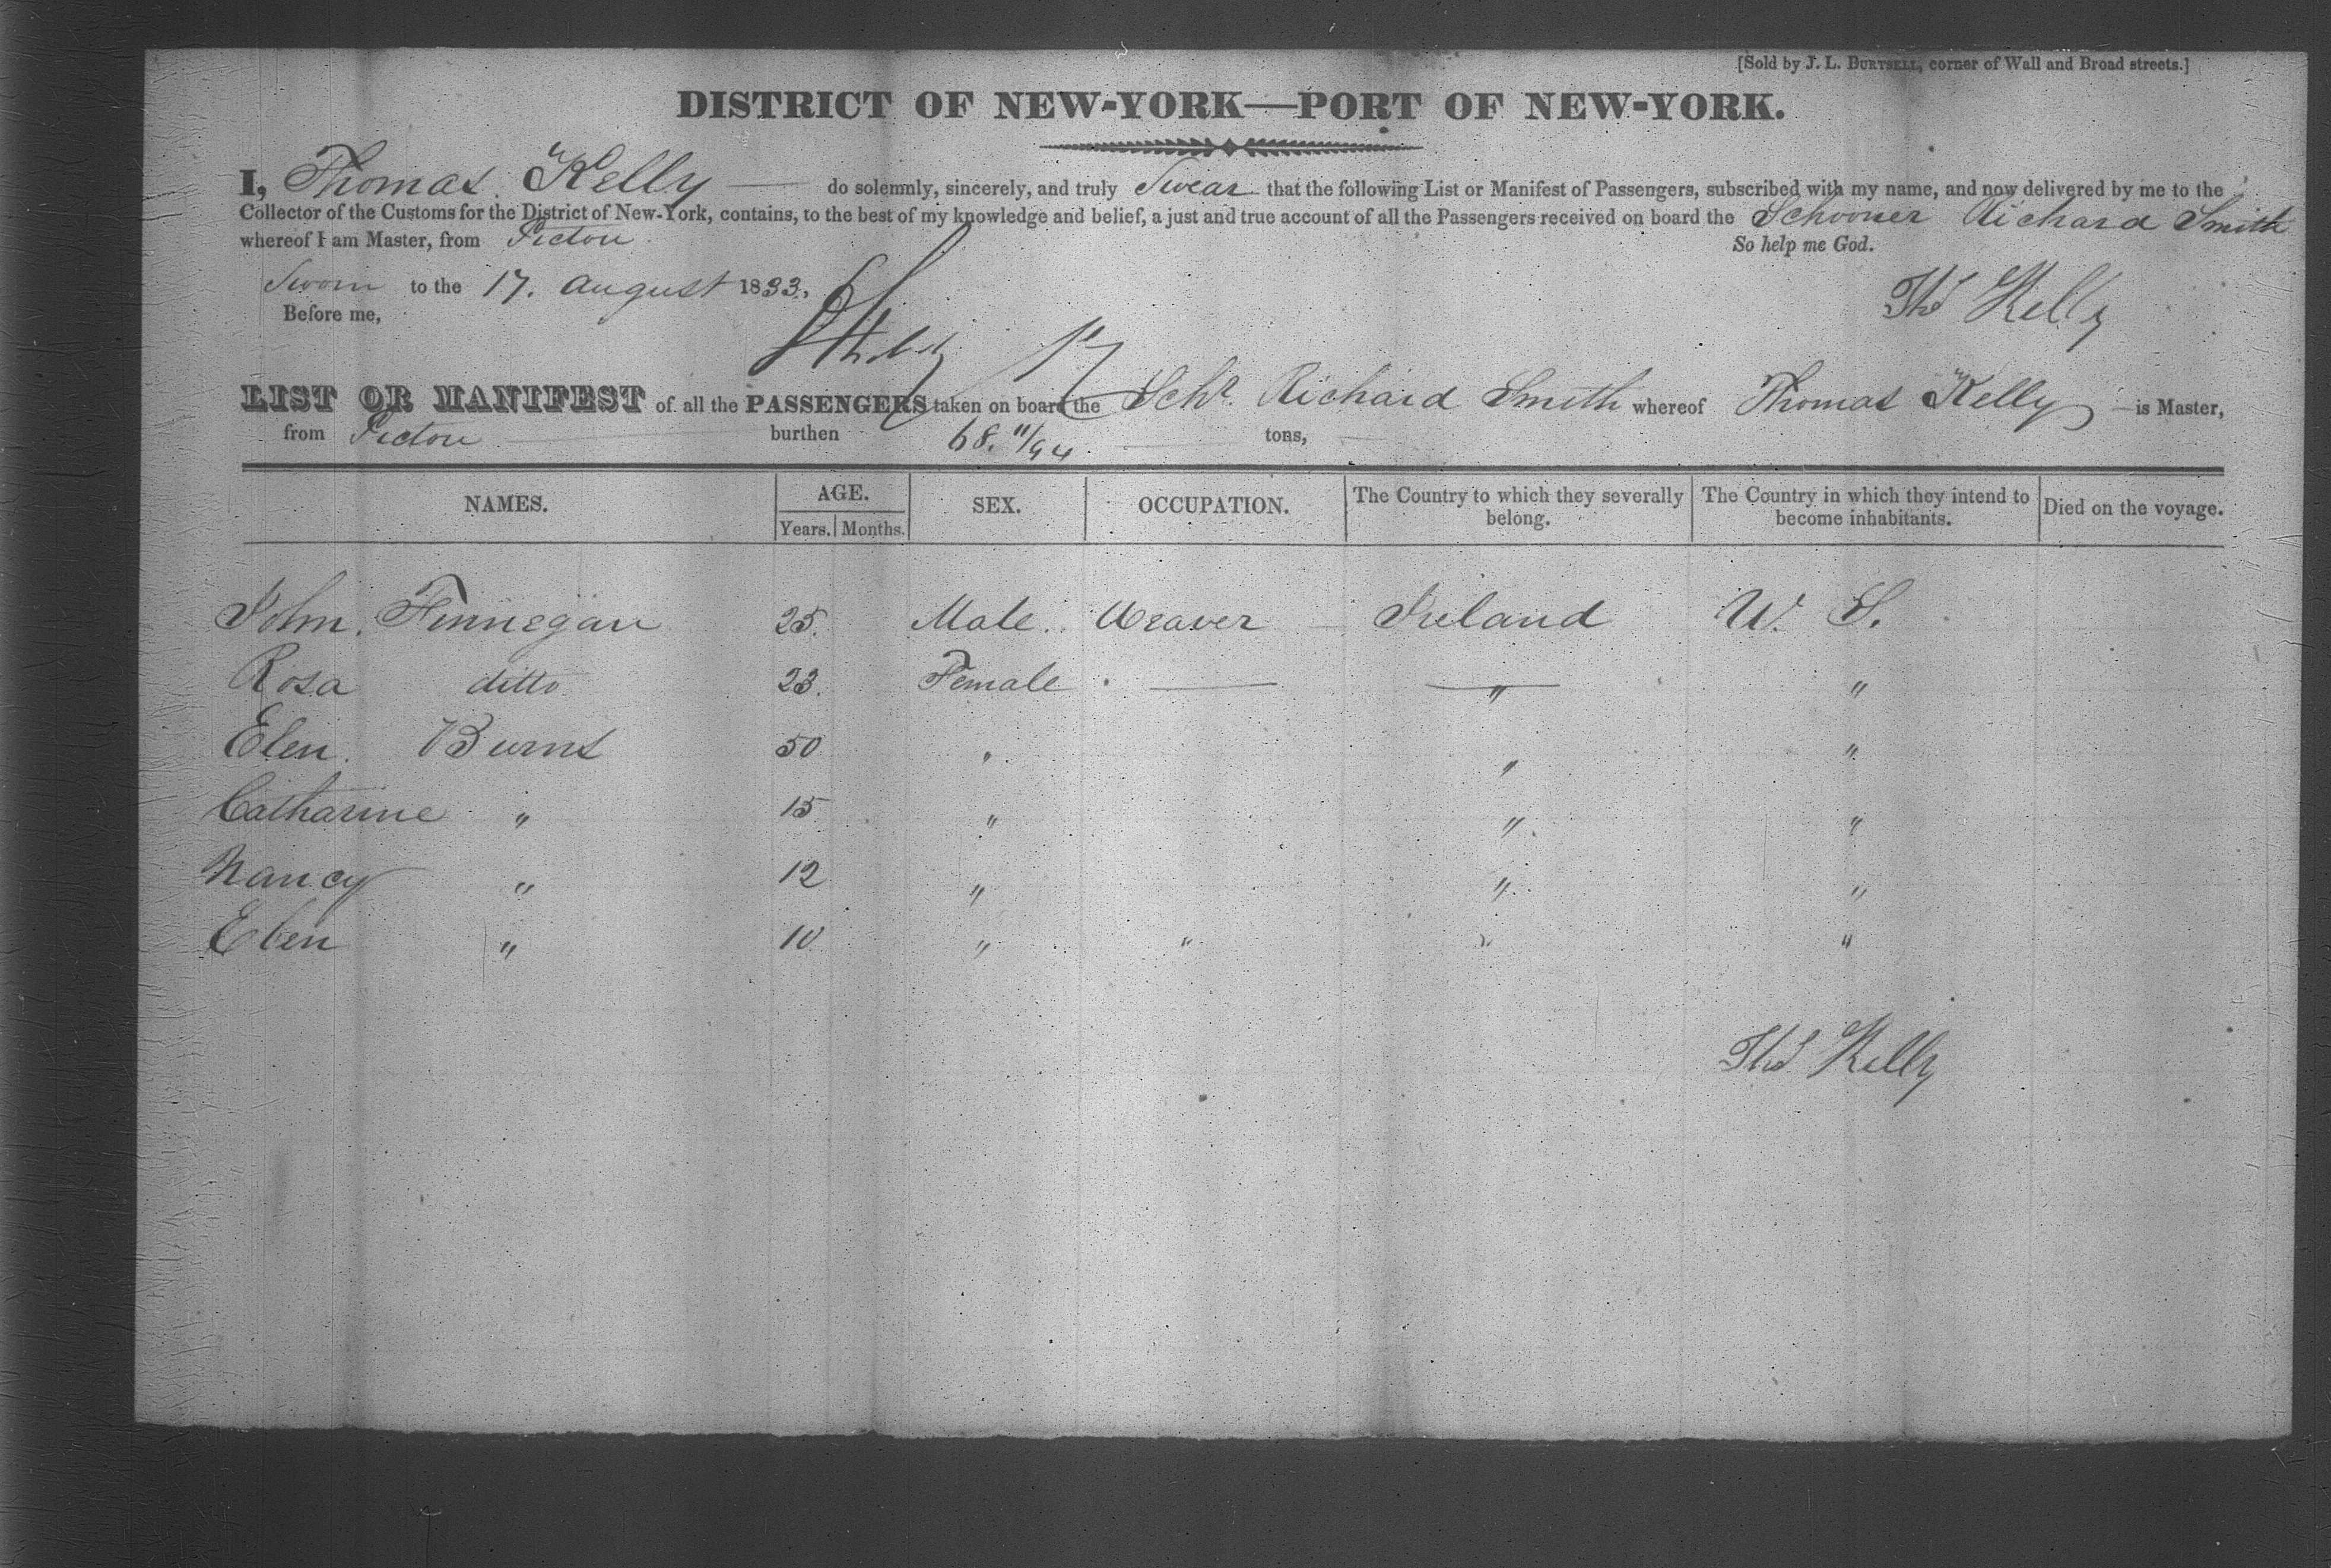 [Sold by J. L. BURTSELL, corner of Wall and Broad streets.]
DISTRICT OF NEW-YORK—PORT OF NEW-YORK.
I, Thomas Kelly — do solemnly, sincerely, and truly Swear that the following List or Manifest of Passengers, subscribed with my name, and now delivered by me to the
Collector of the Customs for the District of New-York, contains, to the best of my knowledge and belief, a just and true account of all the Passengers received on board the Schooner Richard Smith
whereof I am Master, from Pictou So help me God.
Sworn to the 17. August 1833,
Thos Kelly
Before me,
LIST OR MANIFEST of all the PASSENGERS taken on board the Schr. Richard Smith whereof Thomas Kelly — is Master,
from Pictou burthen 68. 11/94 tons,
NAMES. AGE. SEX. OCCUPATION. The Country to which they severally belong. The Country in which they intend to become inhabitants. Died on the voyage.
Years. Months.
John Finnegan 25. Male. Weaver Ireland U. S.
Rosa ditto 23. Female — " "
Elen Burns 50 " " "
Catharine " 15 " " "
Nancy " 12 " " "
Elen " 10 " " " "
Thos Kelly